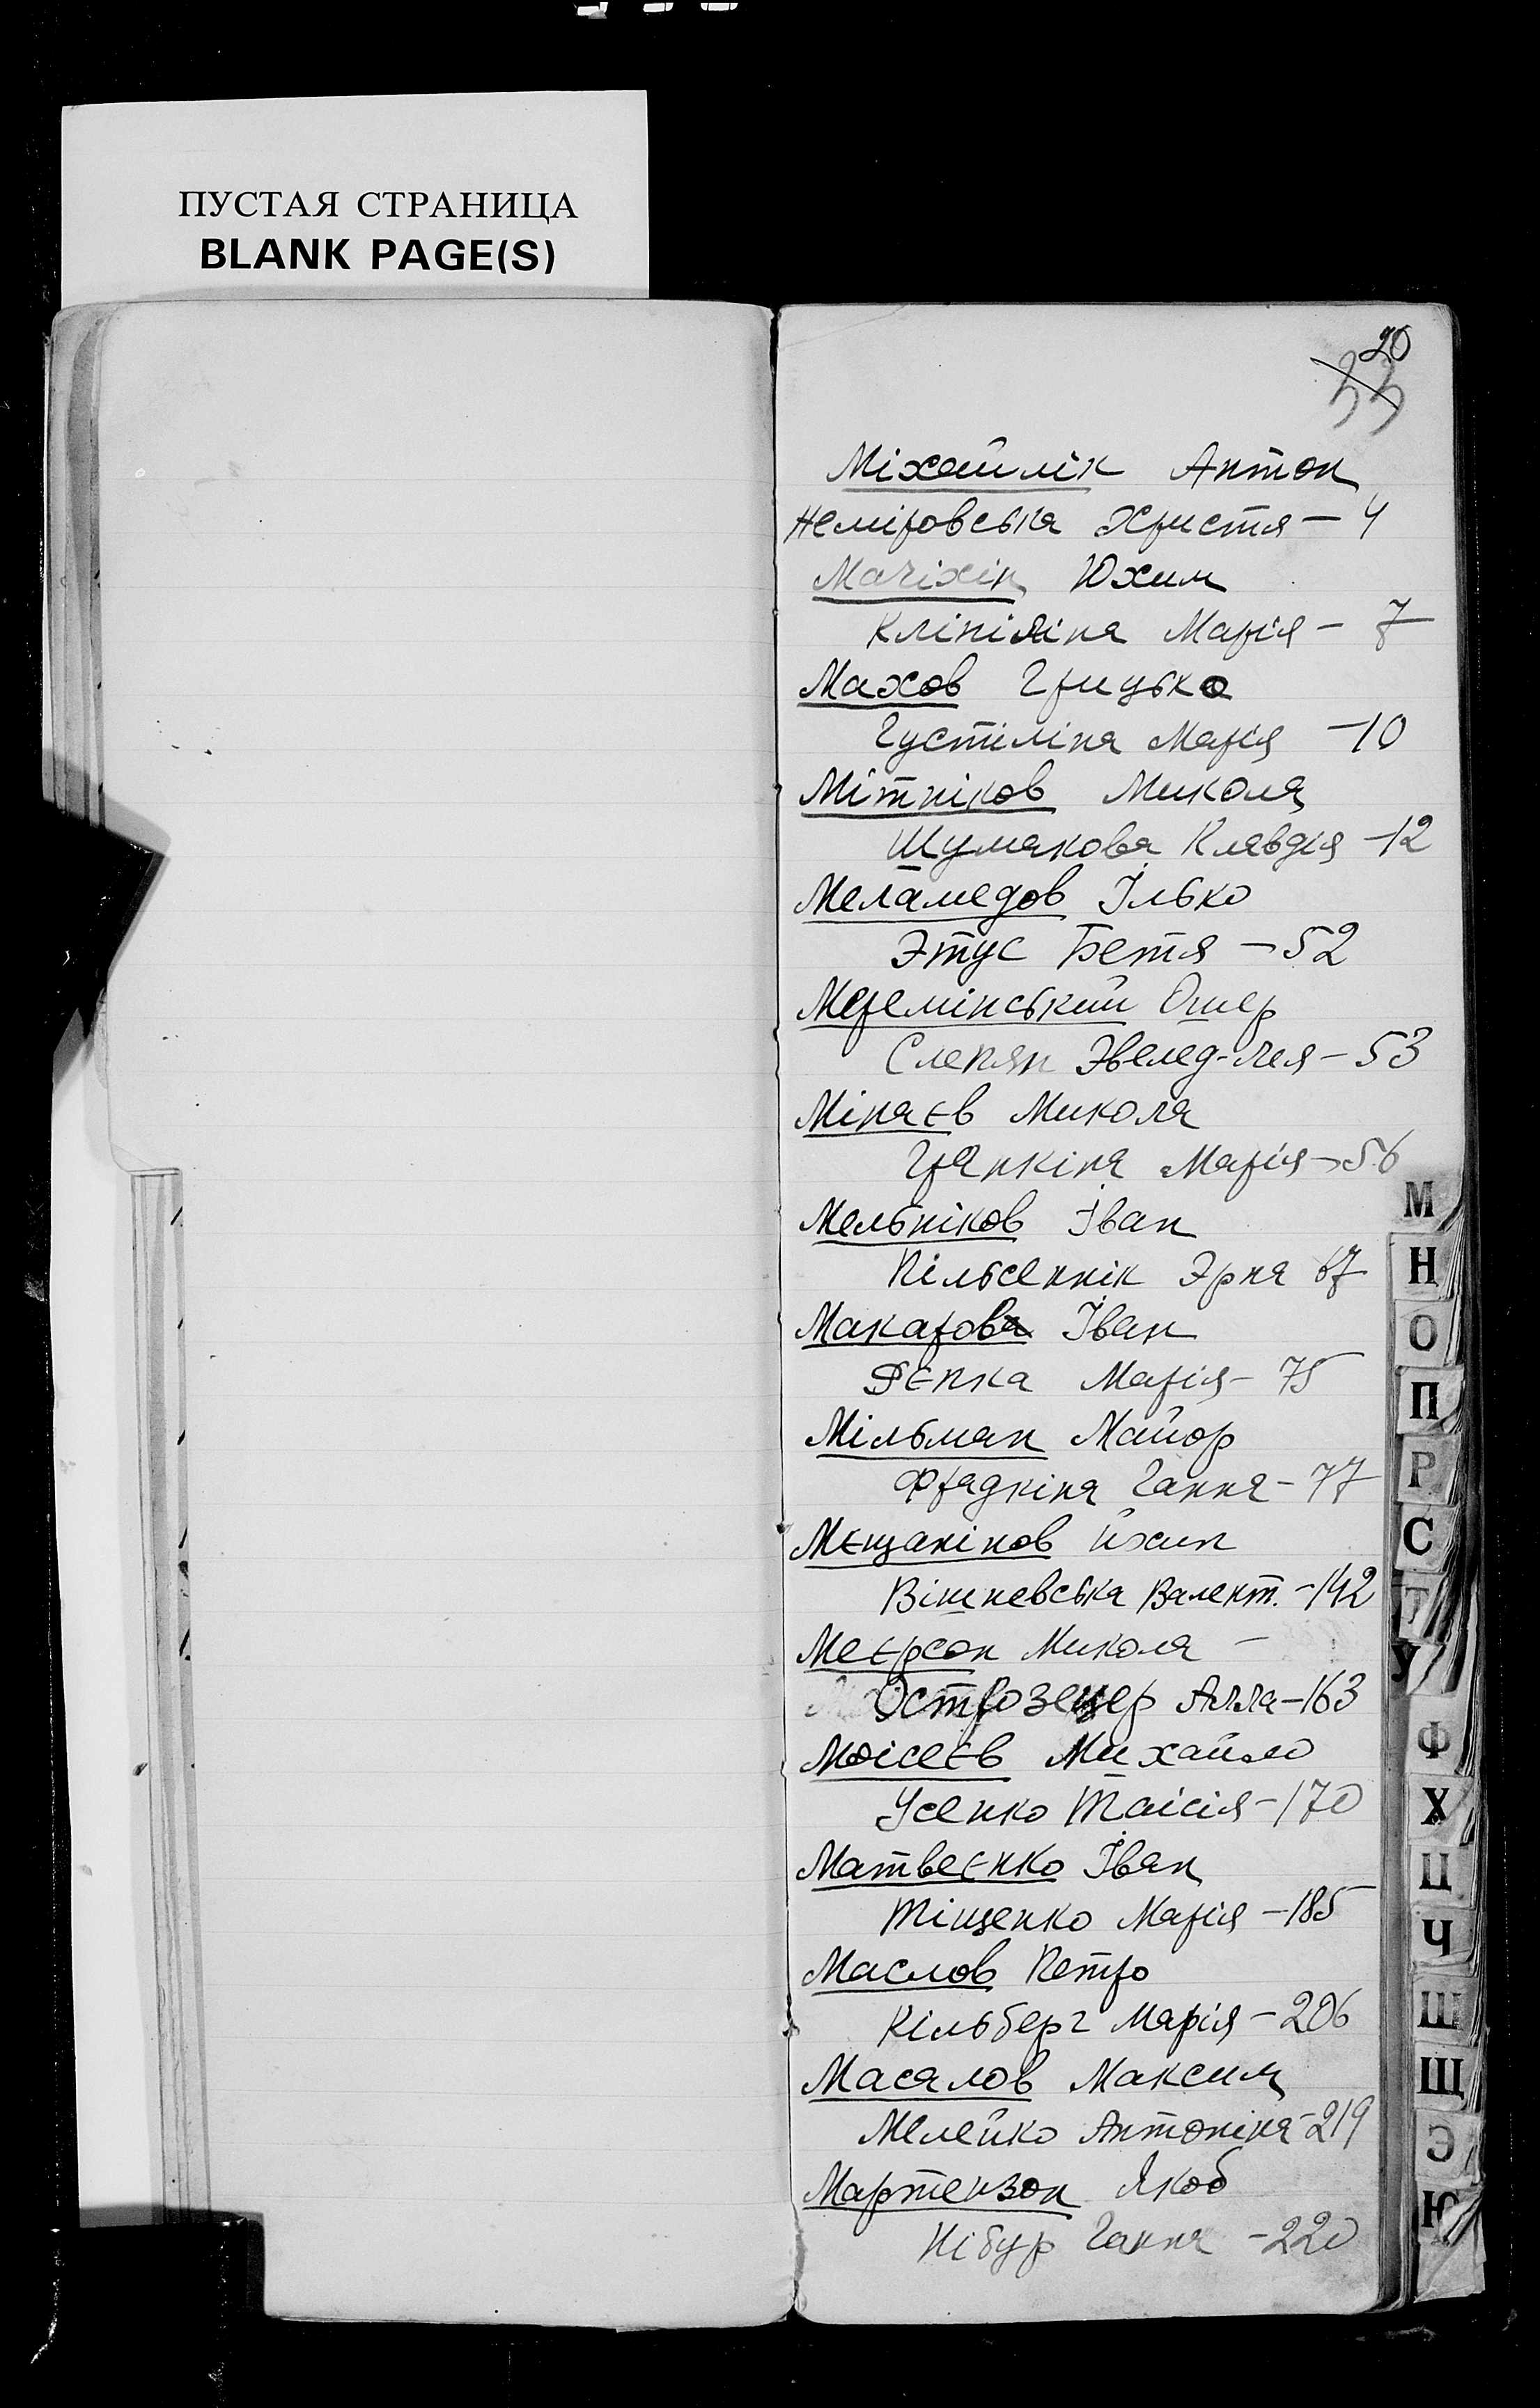 ПУСТАЯ СТРАНИЦА
BLANK PAGE(S)
20
33
Міхайлік Антон
Неміровська Христя – 4
Мачіхін Юхим
Марія – 7
Махов Грицько
Густіліна Марія – 10
Мітніков Микола
Шумакова Клавдія – 12
Меламедов Ілько
Этус Бетя – 52
Меремінський Ошер
Слепян Эвелед-Лея – 53
Мінаєв Микола
Гранкіна Марія – 56
Мельніков Іван
Пільсеннік Эрна 67
Макаров Іван
Марія – 75
Мільман Майор
Фрадкіна Ганна – 77
Мєщанінов
Вішневська Валент. – 142
Меєрсон Микола –
Острозецер Алла – 163
Моісеєв Михайло
Усенко Таісія – 170
Матвеєнко Іван
Тіщенко Марія – 185
Маслов Петро
Кільберг Марія – 206
Масалов Максим
Мелейко Антоніна – 219
Мартензон Якоб
Нібур Ганна – 220
М
Н
О
П
Р
С
Т
У
Ф
Х
Ц
Ч
Ш
Щ
Э
Ю